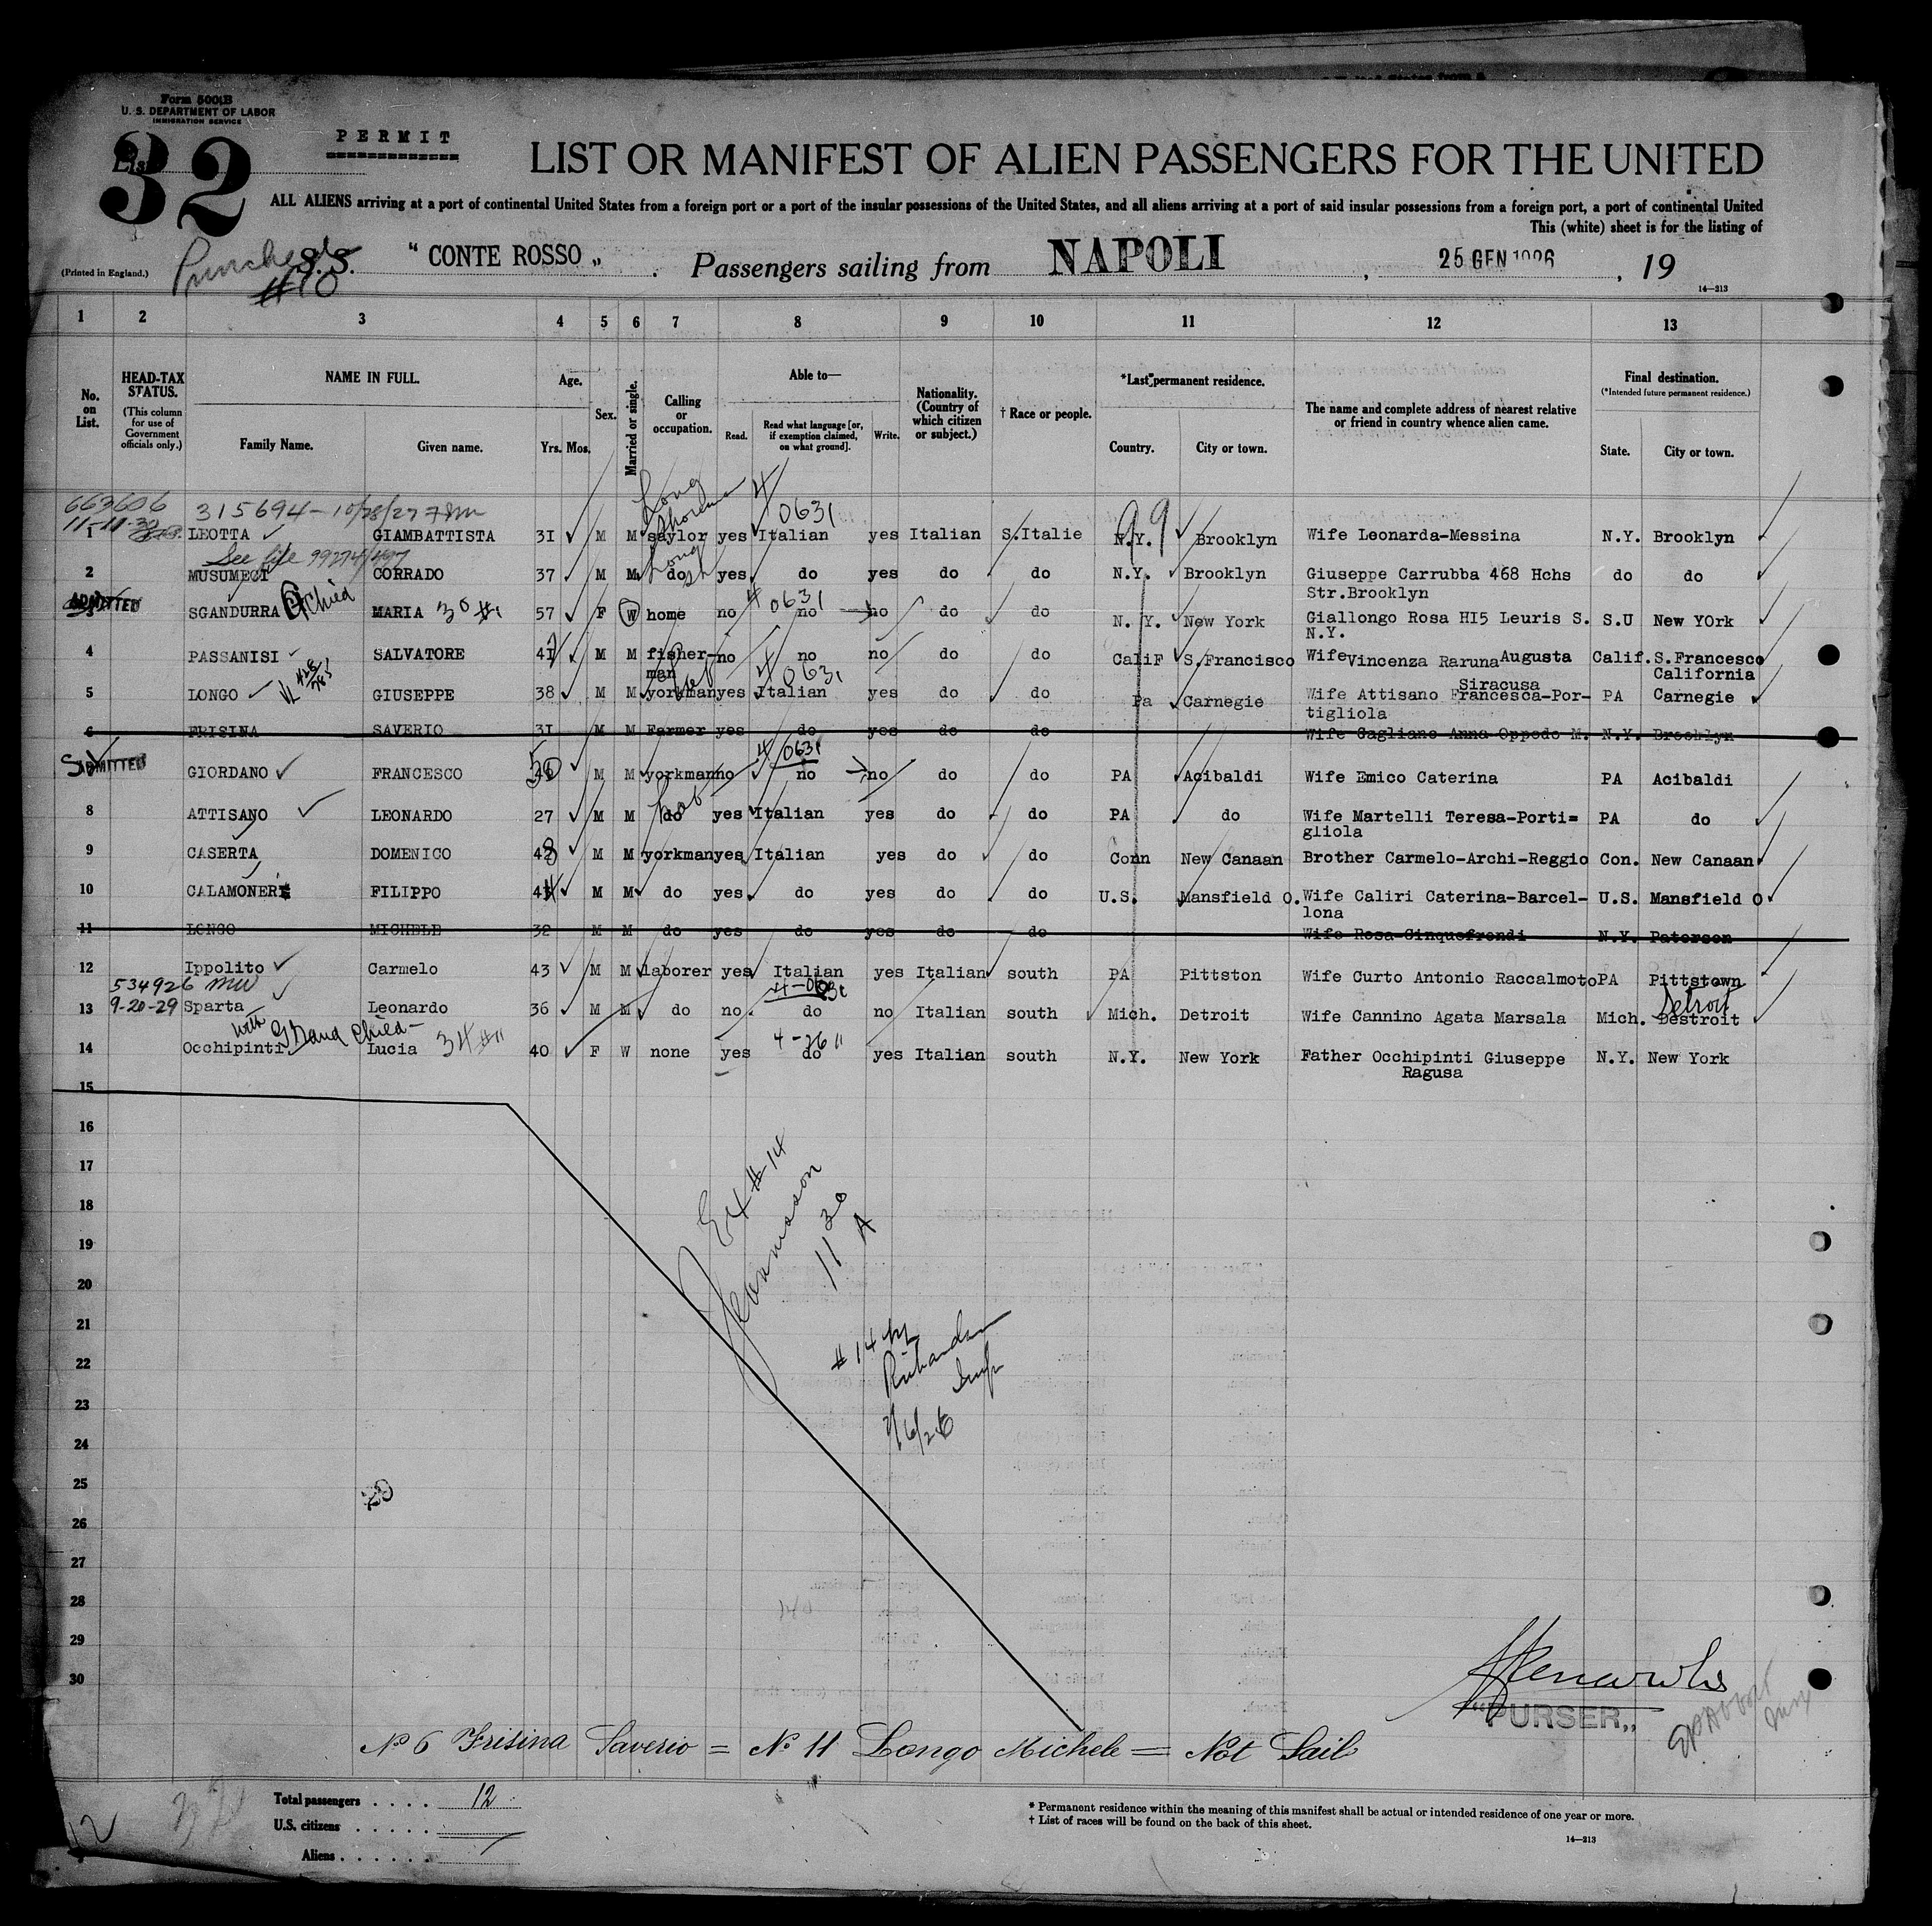 Form 500B
U. S. DEPARTMENT OF LABOR
IMMIGRATION SERVICE
PERMIT
List 32
LIST OR MANIFEST OF ALIEN PASSENGERS FOR THE UNITED
ALL ALIENS arriving at a port of continental United States from a foreign port or a port of the insular possessions of the United States, and all aliens arriving at a port of said insular possessions from a foreign port, a port of continental United
This (white) sheet is for the listing of
(Printed in England.) S.S. "CONTE ROSSO„ . Passengers sailing from NAPOLI , 25 GEN 1926 , 19
14—213
1 2 3 4 5 6 7 8 9 10 11 12 13
No. on List. HEAD-TAX STATUS. (This column for use of Government officials only.) NAME IN FULL. Family Name. Given name. Age. Yrs. Mos. Sex. Married or single. Calling or occupation. Able to— Read. Read what language [or, if exemption claimed, on what ground]. Write. Nationality. (Country of which citizen or subject.) † Race or people. *Last permanent residence. Country. City or town. The name and complete address of nearest relative or friend in country whence alien came. Final destination. (*Intended future permanent residence.) State. City or town.
663606 315694-10/28/27
Long shoreman 4 0631 99
1 LEOTTA GIAMBATTISTA 31 M M saylor yes Italian yes Italian S.Italie N.Y. Brooklyn Wife Leonarda-Messina N.Y. Brooklyn
See file 99274/497
2 MUSUMECI CORRADO 37 M M do yes do yes do do N.Y. Brooklyn Giuseppe Carrubba 468 Hchs do do
Str.Brooklyn
ADMITTED 4 0631
3 SGANDURRA & Child MARIA 30 #1 57 F W home no no no do do N. Y. New York Giallongo Rosa HI5 Leuris S. S.U New YOrk
N.Y.
4 PASSANISI SALVATORE 41 M M fisher- no no no do do CaliF S.Francisco Wife Vincenza Raruna Augusta Calif. S.Francesco
man Siracusa California
4 0631
5 LONGO GIUSEPPE 38 M M yorkman yes Italian yes do do Pa Carnegie Wife Attisano Francesca-Por- PA Carnegie
tigliola
6 FRISINA SAVERIO 31 M M Farmer yes do yes do do Wife Gagliano Anna Oppodo M. N.Y. Brooklyn
ADMITTED 50 4 0631
GIORDANO FRANCESCO M M yorkman no no no do do PA Acibaldi Wife Emico Caterina PA Acibaldi
8 ATTISANO LEONARDO 27 M M do yes Italian yes do do PA do Wife Martelli Teresa-Porti= PA do
gliola
9 CASERTA DOMENICO 43 M M yorkman yes Italian yes do do Conn New Canaan Brother Carmelo-Archi-Reggio Con. New Canaan
10 CALAMONERI FILIPPO 44 M M do yes do yes do do U.S. Mansfield O. Wife Caliri Caterina-Barcel- U.S. Mansfield O
lona
11 LONGO MICHELE 32 M M do yes do yes do do Wife Rosa-Cinquefrondi N.Y. Paterson
12 Ippolito Carmelo 43 M M laborer yes Italian yes Italian south PA Pittston Wife Curto Antonio Raccalmoto PA Pittstown
534926 4-0631 Detroit
9-20-29
13 Sparta Leonardo 36 M M do no do no Italian south Mich. Detroit Wife Cannino Agata Marsala Mich. Destroit
with Grand Child- 4-26
14 Occhipinti Lucia 34 #11 40 F W none yes do yes Italian south N.Y. New York Father Occhipinti Giuseppe N.Y. New York
Ragusa
15
16
17
18
19
20
21
22
23
24
25
26
27
28
29
30
#14
11 30 A
#14 by
Richardson
Insp
2/6/26
20
"PURSER„
No 6 Frisina Saverio = No 11 Longo Michele = Not Sail
Total passengers . . . . 12
U.S. citizens . . . . .
Aliens . . . . . .
* Permanent residence within the meaning of this manifest shall be actual or intended residence of one year or more.
† List of races will be found on the back of this sheet.
14—213